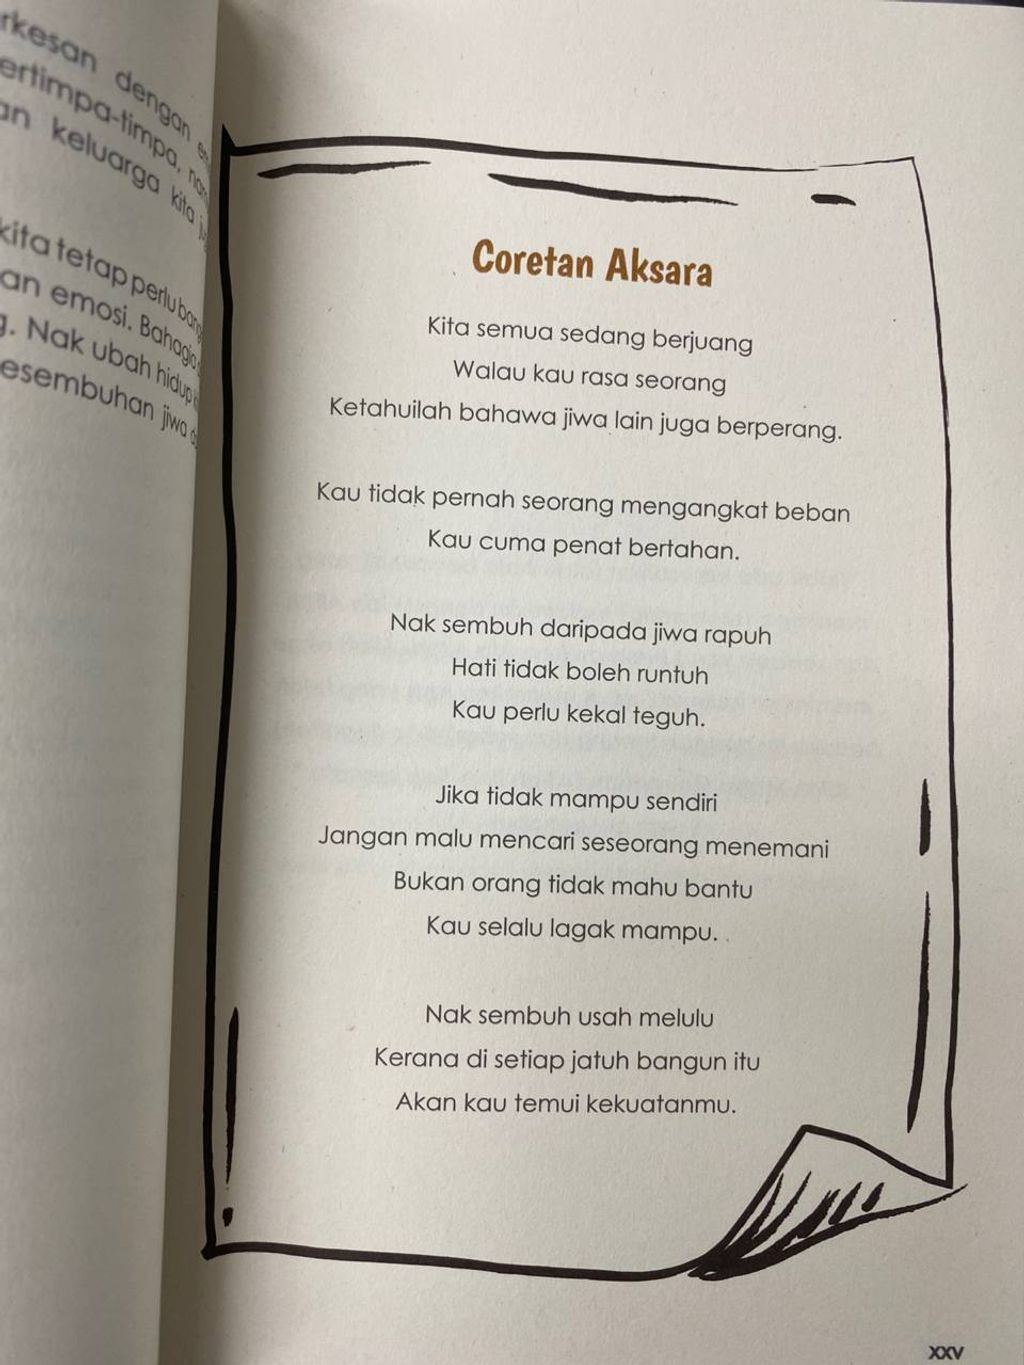 dengan
keluarga kita
kita tetap perlu
an emosi.
Nak ubah hidup
jiwa
Coretan Aksara
Kita semua sedang berjuang
Walau kau rasa seorang
Ketahuilah bahawa jiwa lain juga berperang.
Kau tidak pernah seorang mengangkat beban
Kau cuma penat bertahan.
Nak sembuh daripada jiwa rapuh
Hati tidak boleh runtuh
Kau perlu kekal teguh.
Jika tidak mampu sendiri
Jangan malu mencari seseorang menemani
Bukan orang tidak mahu bantu
Kau selalu lagak mampu.
Nak sembuh usah melulu
Kerana di setiap jatuh bangun itu
Akan kau temui kekuatanmu.
XXV